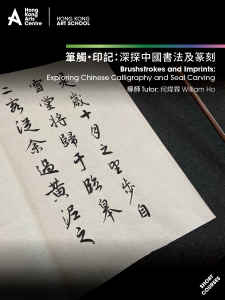 Hong
Kong
Arts
Centre
HONG KONG
ART SCHOOL
筆觸・印記：深探中國書法及篆刻
Brushstrokes and Imprints:
Exploring Chinese Calligraphy and Seal Carving
導師 Tutor: 何煒霖 William Ho
是歲十月之望步自
雪堂將歸于臨皋
二客從余過黃泥之
SHORT
COURSES